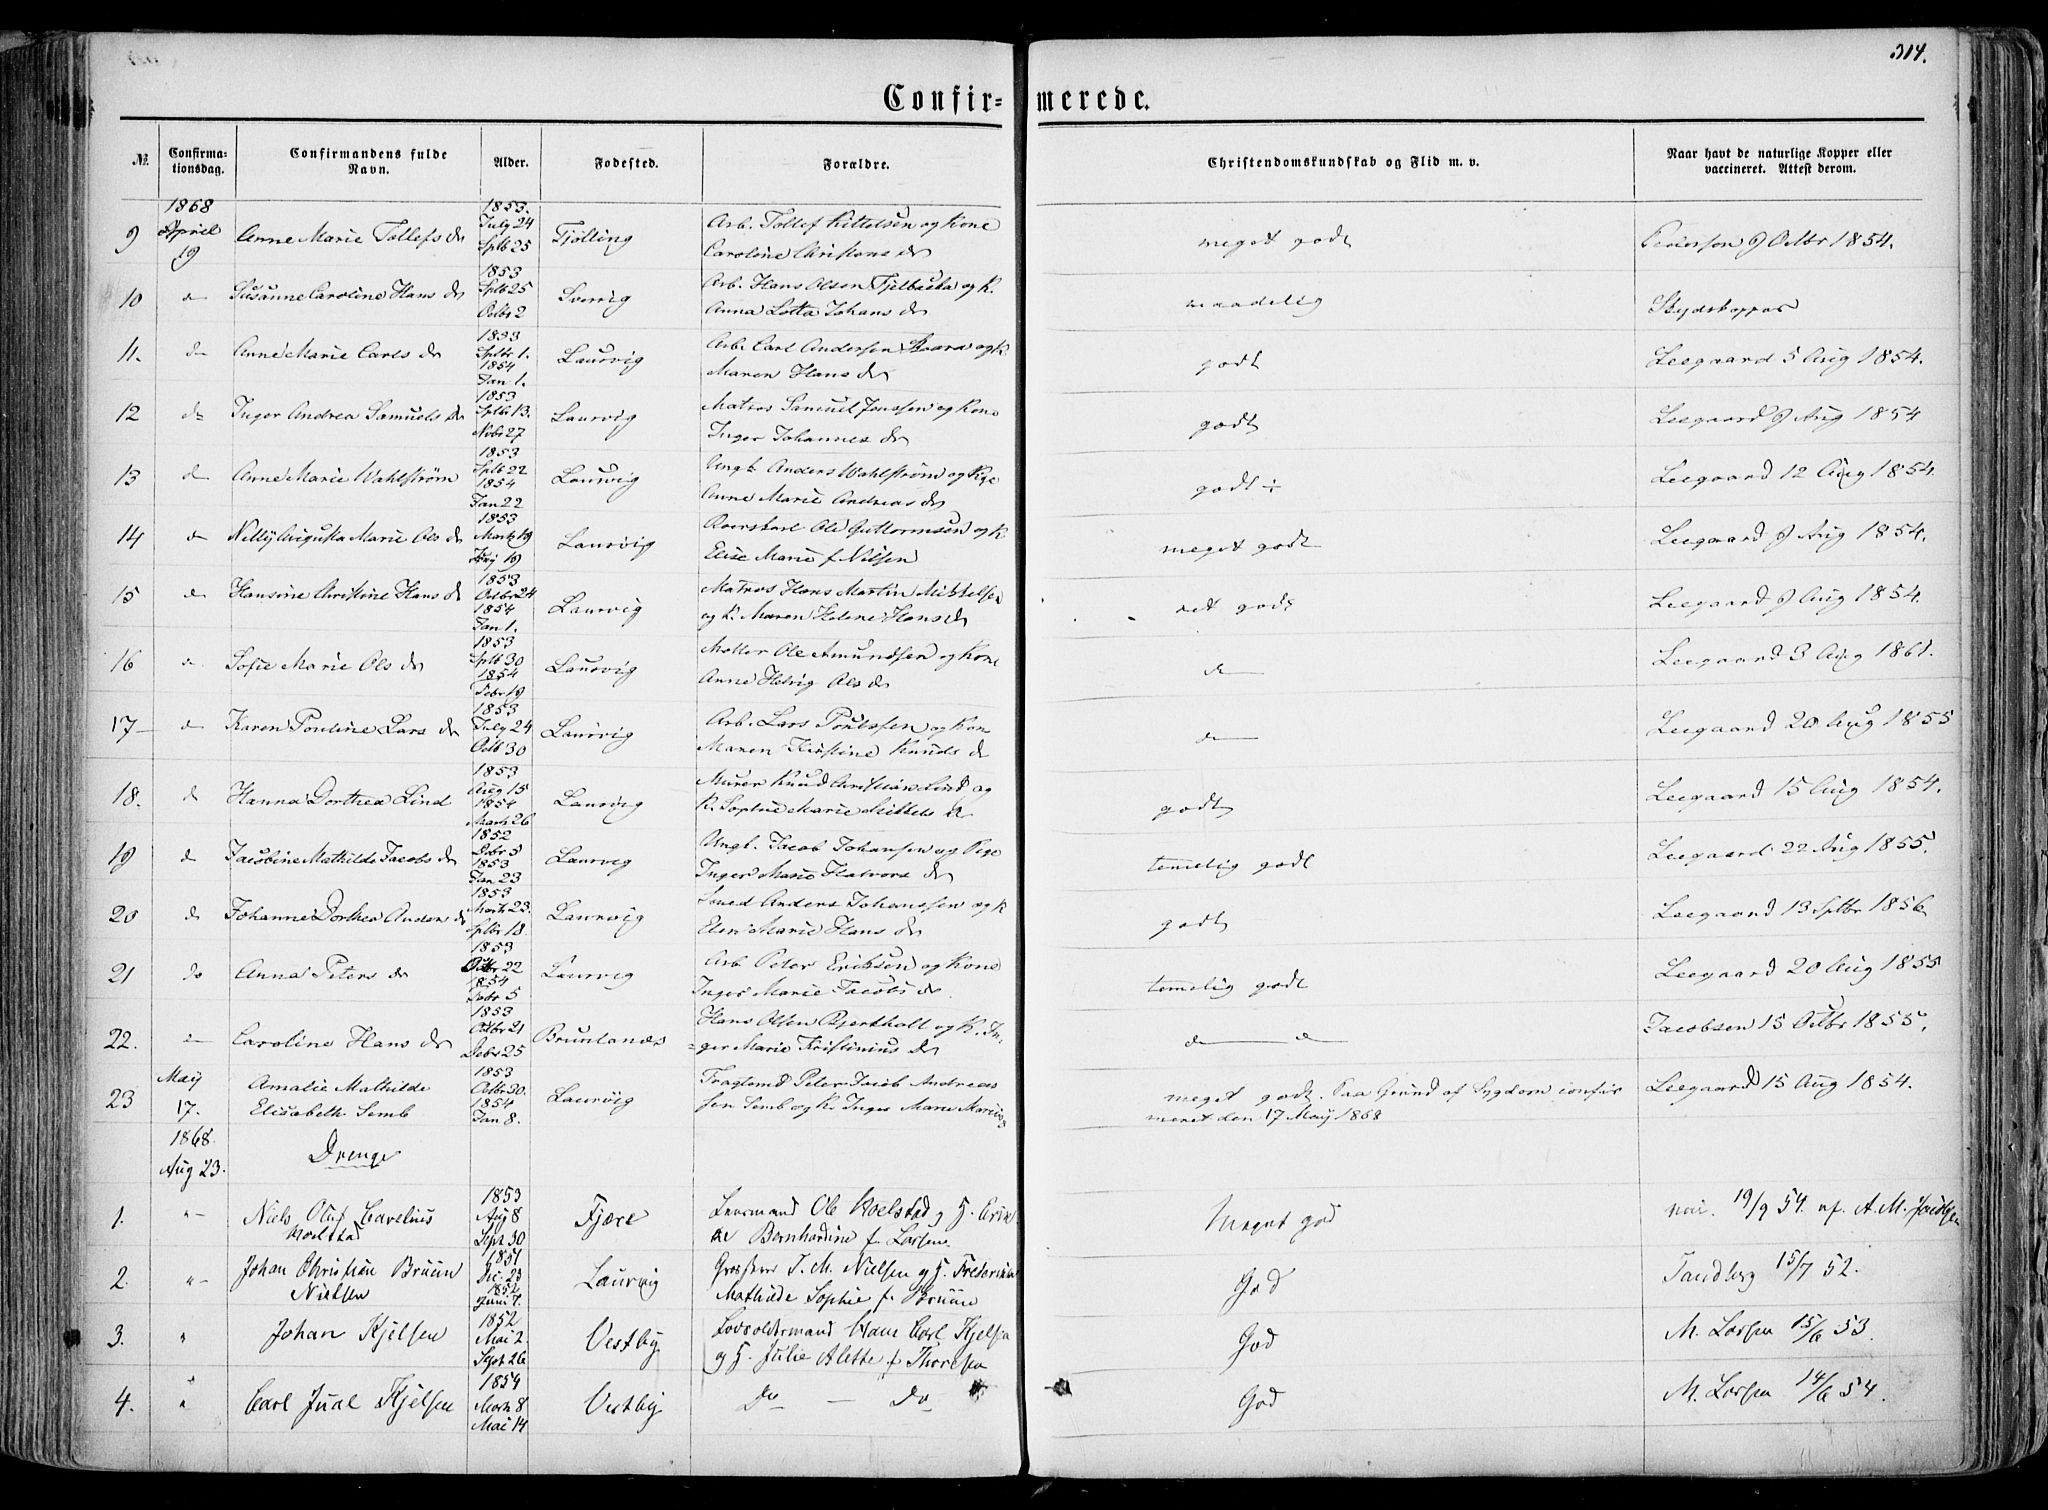 314.
Confir- merede.
№ Confirma-tionsdag. Confirmandens fulde Navn. Alder. Fødested. Forældre. Christendomskundskab og Flid m. v. Naar havt de naturlige Kopper eller vaccineret. Attest derom.
1868 1853.
9 April 19 Anne Marie Tollefs dr July 24 Sptb 25 Tjølling Arb. Tollef Kittelsen og Kone meget godt 9 Octbr 1854.
Caroline Christens dr
1853
10 do Susanne Caroline Hans dr Sptb 25 Octbr 2 Sverrig Arb. Hans Olsen Fjelbacka og K. maadelig Skydskopper
Anna Lotta Johans dr
1853
11. do Anne Marie Carls dr Sptbr 1. 1854 Jan 1. Laurvig Arb. Carl Andersen og K. godt Leegaard 5 Aug 1854.
Maren Hans dr
1853
12 do Inger Andrea Samuels dr Sptb 13. Nvbr 27 Laurvig Matros Samuel Jensen og Kone godt Leegaard 9 Aug 1854
Inger Johannes dr
1853
13 do Anne Marie Wahlstrøm Sptb 22 1854 Jan 22 Laurvig Ungk. Anders Wahlstrøm og Pige godt ÷ Leegaard 12 Aug 1854.
Anne Marie Andreas dr
1853
14 do Nelly Augusta Marie Ols dr Marts 19 Laurvig Ole Guttormsen og K. meget godt Leegaard 9 Aug 1854.
Elise Marie f. Nilsen
1853
15 do Hansine Christine Hans dr Octbr 24 1854 Jan 1. Laurvig Matros Hans Martin Mikkelsen ret godt Leegaard 9 Aug 1854.
og K. Maren Helene Hans dr
1853
16 do Sofie Marie Ols dr Sptb 30 1854 Febr 19 Laurvig Møller Ole Amundsen og Kone do Leegaard 3 Aug 1861.
Anne Helvig Ols dr
1853
17 do Karen Pouline Lars dr July 24 Octb 30 Laurvig Arb. Lars Poulsen og Kone do Leegaard 20 Aug 1855
Maren Kirstine Knuds dr
1853
18. do Hanna Dorthea Lind Aug 15 1854 Marts 26 Laurvig Murer Knud Christian Lind og godt Leegaard 15 Aug 1854.
K. Sophie Marie Mikkels dr
1852
19 do Jacobine Mathilde Jacobs dr Debr 5 1853 Jan 23 Laurvig Ungk. Jacob Johansen og Pige temelig godt Leegaard 22 Aug 1855.
Inger Marie Halvors dr
1853
20 do Johanne Dorthea Anders dr Marts 23. Sptbr 18 Laurvig Anders Johanssen og K godt Leegaard 13 Sptbr 1856
Elen Marie Hans dr
1853
21 do Anna Peters dr Octbr 22 1854 Febr 5 Laurvig Arb Peter Eriksen og Kone temelig godt Leegaard 20 Aug 1855
Inger Marie Jacobs dr
1853
22. do Caroline Hans dr Octbr 21 Debr 25 Brunlanæs Hans Olsen Bjertholt og K. In- do do Jacobsen 15 Octbr 1855.
=ger Marie Kristinius dr
1853
23 May 17. Amalie Mathilde Octbr 30. 1854 Jan 8. Laurvig Fragtemd Peter Jacob Andreas meget godt. Paa Grund af Sygdom confir Leegaard 15 Aug 1854.
Elisabeth Semb sen Semb og K. Inger Marie meret den 17 May 1868
1868 Aug 23. Drenge
1853
1. "- Niels Oluf Carelius Aug 8 Sept 30 Fjære Ole Roelstad og H. Meget god 19/9 54. af. A. M.
Roelstad Bernhardine f. Larsen
1851
2. "- Johan Christian Bruun Dec. 23 1852 Juni 7. Laurvig J. M. Nielsen og H. Frederikke God Tandberg 15/7 52.
Nielsen Mathilde Sophie f. Bruun
1852
3. " Johan Kjelsen Mai 2. Sept 26 Vestby Lodsoldermand Hans Carl Kjelsen God M. Larsen 15/6 53.
og H. Julie Alette f. Thoresen
1854
4. " Carl Juul Kjelsen Marts 8 Mai 14 Vestby Do — Do God M. Larsen 14/6 54.